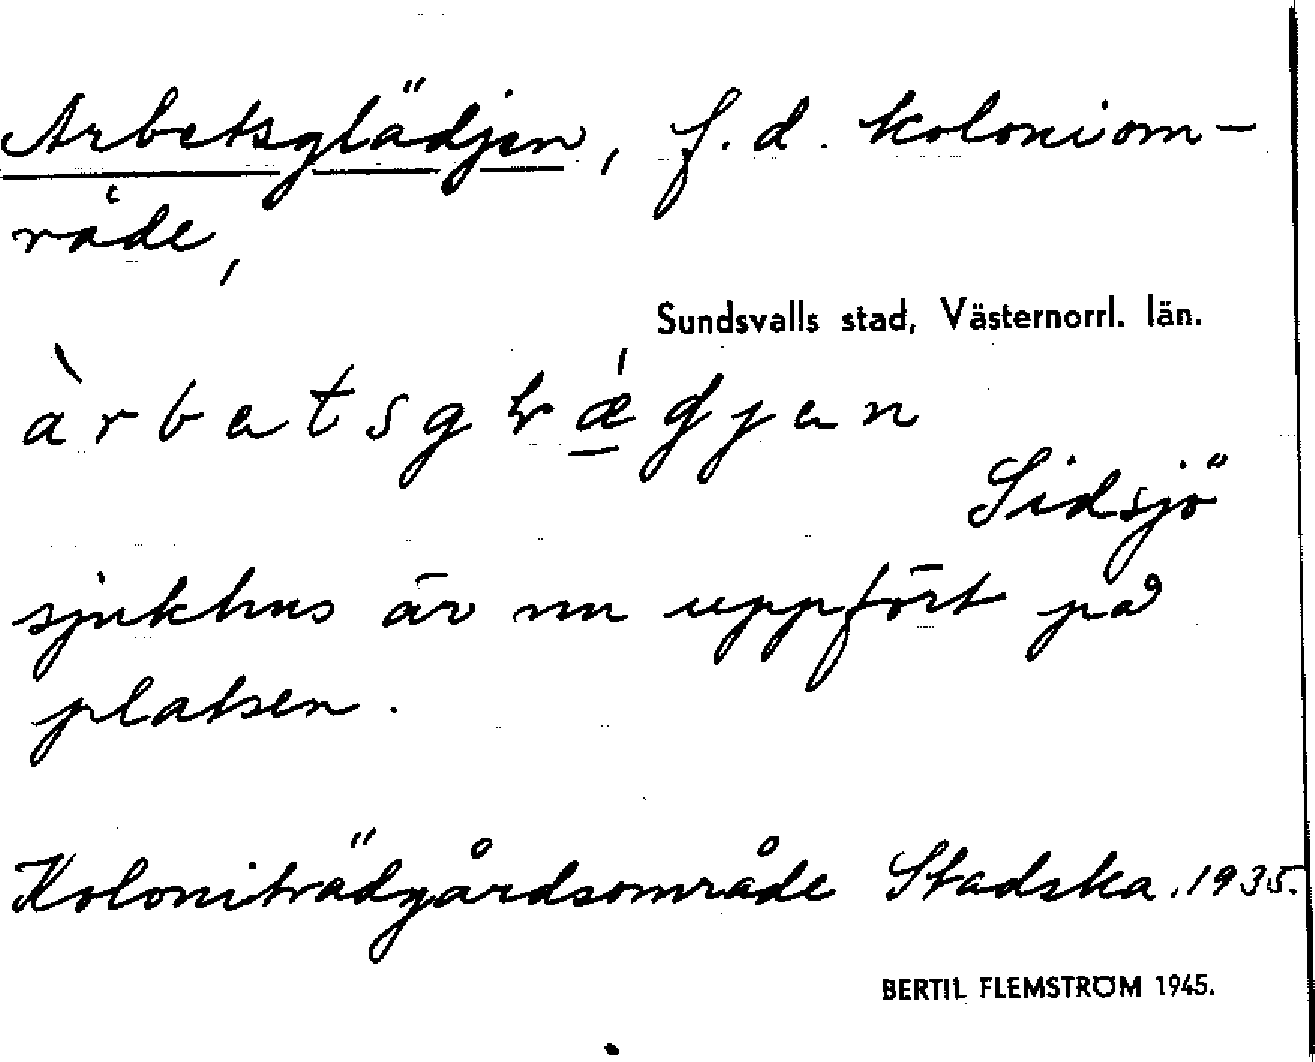 Arbetsglädjen, f.d. koloniom-
råde,
Sundsvalls stad, Västernorrl. län.
àrbetsglǽdjen
Sidsjö
sjukhus är nu uppfört på
platsen.
Koloniträdgårdsområde Stadska. 1935.
BERTIL FLEMSTRÖM 1945.